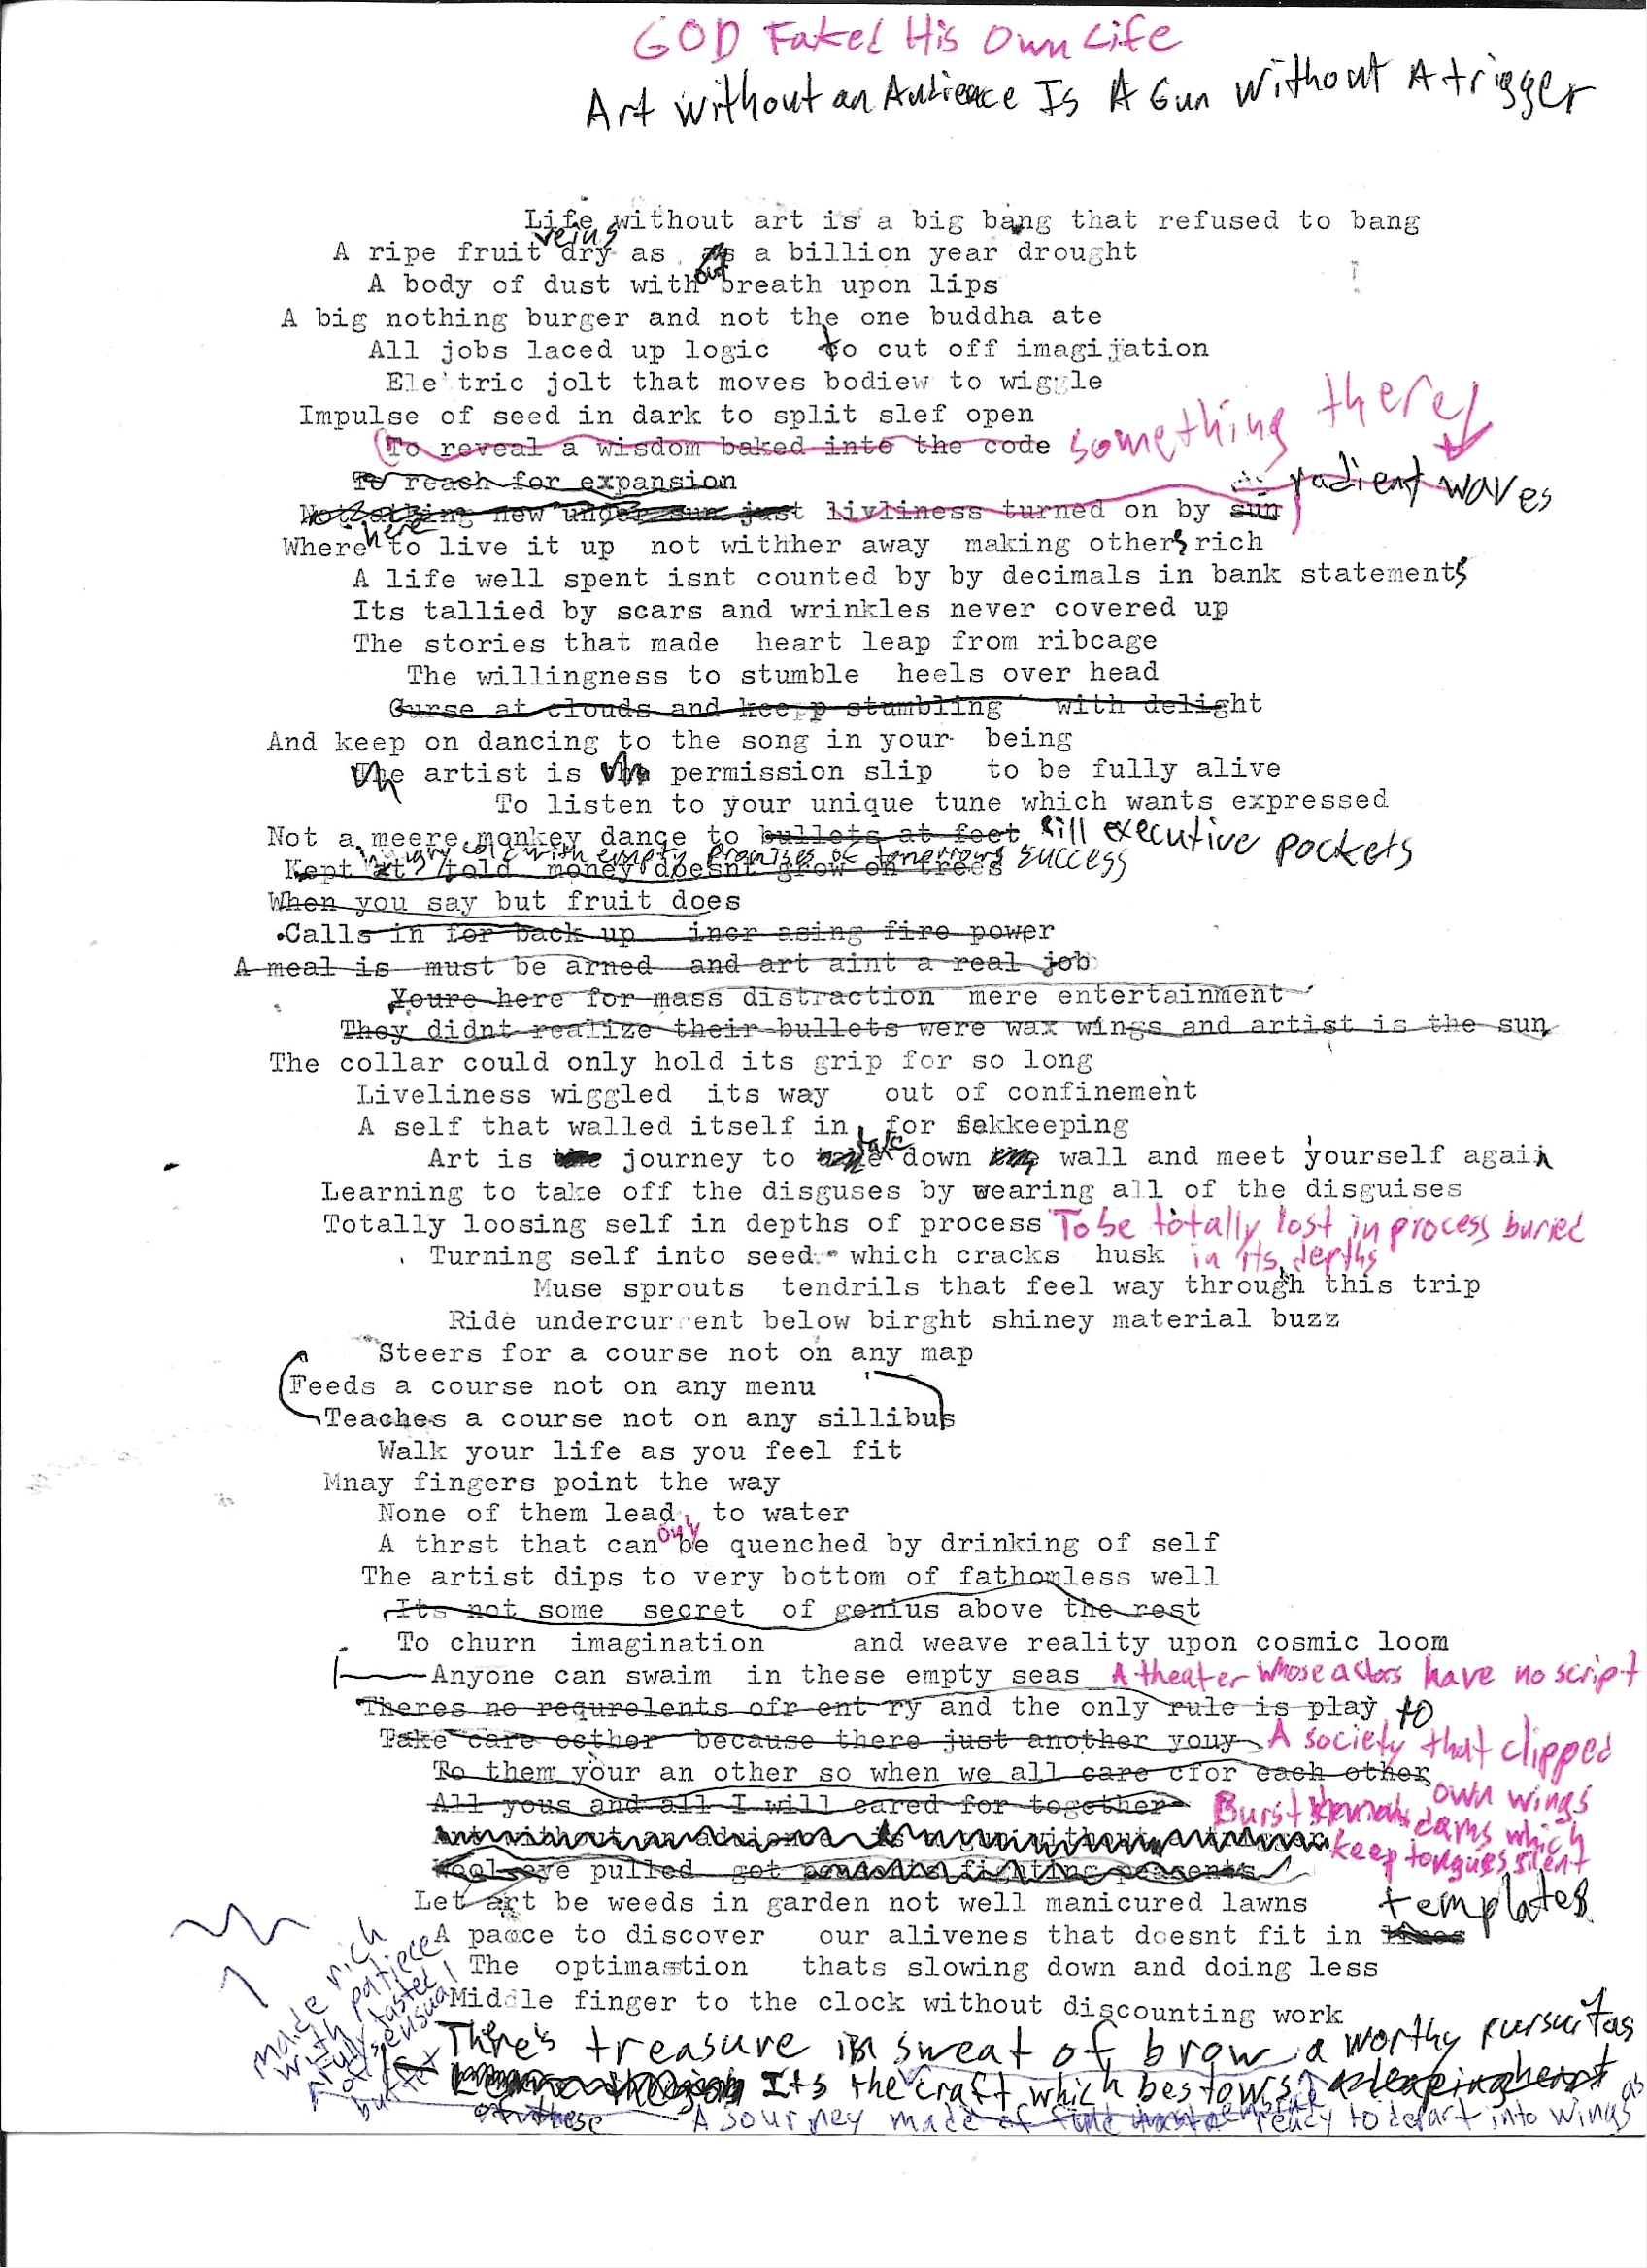 GOD Faked His Own Life
Art Without an Audience Is A Gun Without A trigger
Life without art is a big bang that refused to bang
A ripe fruit veins dry as a billion year drought
A body of dust without breath upon lips
A big nothing burger and not the one buddha ate
All jobs laced up logic to cut off imagijation
Ele tric jolt that moves bodiew to wiggle
Impulse of seed in dark to split slef open
To reveal a wisdom baked into the code something there
To reach for expansion
new under sun just livliness turned on by sun radient waves
Where here to live it up not withher away making others rich
A life well spent isnt counted by by decimals in bank statements
Its tallied by scars and wrinkles never covered up
The stories that made heart leap from ribcage
The willingness to stumble heels over head
Curse at clouds and keepp stumbling with delight
And keep on dancing to the song in your being
The artist is permission slip to be fully alive
To listen to your unique tune which wants expressed
Not a meere monkey dance to bullets at feet fill executive pockets
with empty promises of tomorrows success
Kept at told money doesnt grow on trees
When you say but fruit does
Calls in for back up incr asing fire power
A meal is must be arned and art aint a real job
Youre here for mass distraction mere entertainment
They didnt realize their bullets were wax wings and artist is the sun
The collar could only hold its grip for so long
Liveliness wiggled its way out of confinement
A self that walled itself in for sakkeeping
Art is journey to take down wall and meet yourself again
Learning to take off the disguses by wearing all of the disguises
Totally loosing self in depths of process To be totally lost in process buried
Turning self into seed which cracks husk in its depths
Muse sprouts tendrils that feel way through this trip
Ride undercurrent below birght shiney material buzz
Steers for a course not on any map
Feeds a course not on any menu
Teaches a course not on any sillibus
Walk your life as you feel fit
Mnay fingers point the way
None of them lead to water
A thrst that can only be quenched by drinking of self
The artist dips to very bottom of fathomless well
Its not some secret of genius above the rest
To churn imagination and weave reality upon cosmic loom
Anyone can swaim in these empty seas A theater whose actors have no script
Theres no requrelents ofr ent ry and the only rule is play to
Take care oether because there just another youy A society that clipped
To them your an other so when we all care cfor each other own wings
All yous and all I will cared for together Burst dams which
keep tongues silent
eye pulled get
Let art be weeds in garden not well manicured lawns templates
A paoce to discover our alivenes that doesnt fit in
The optimastion thats slowing down and doing less
Middle finger to the clock without discounting work
made rich
with patiece
fully tasted
sensual
There's treasure in sweat of brow a worthy pursuit as
Its the craft which bestows
of these A journey made of ready to depart into wings as